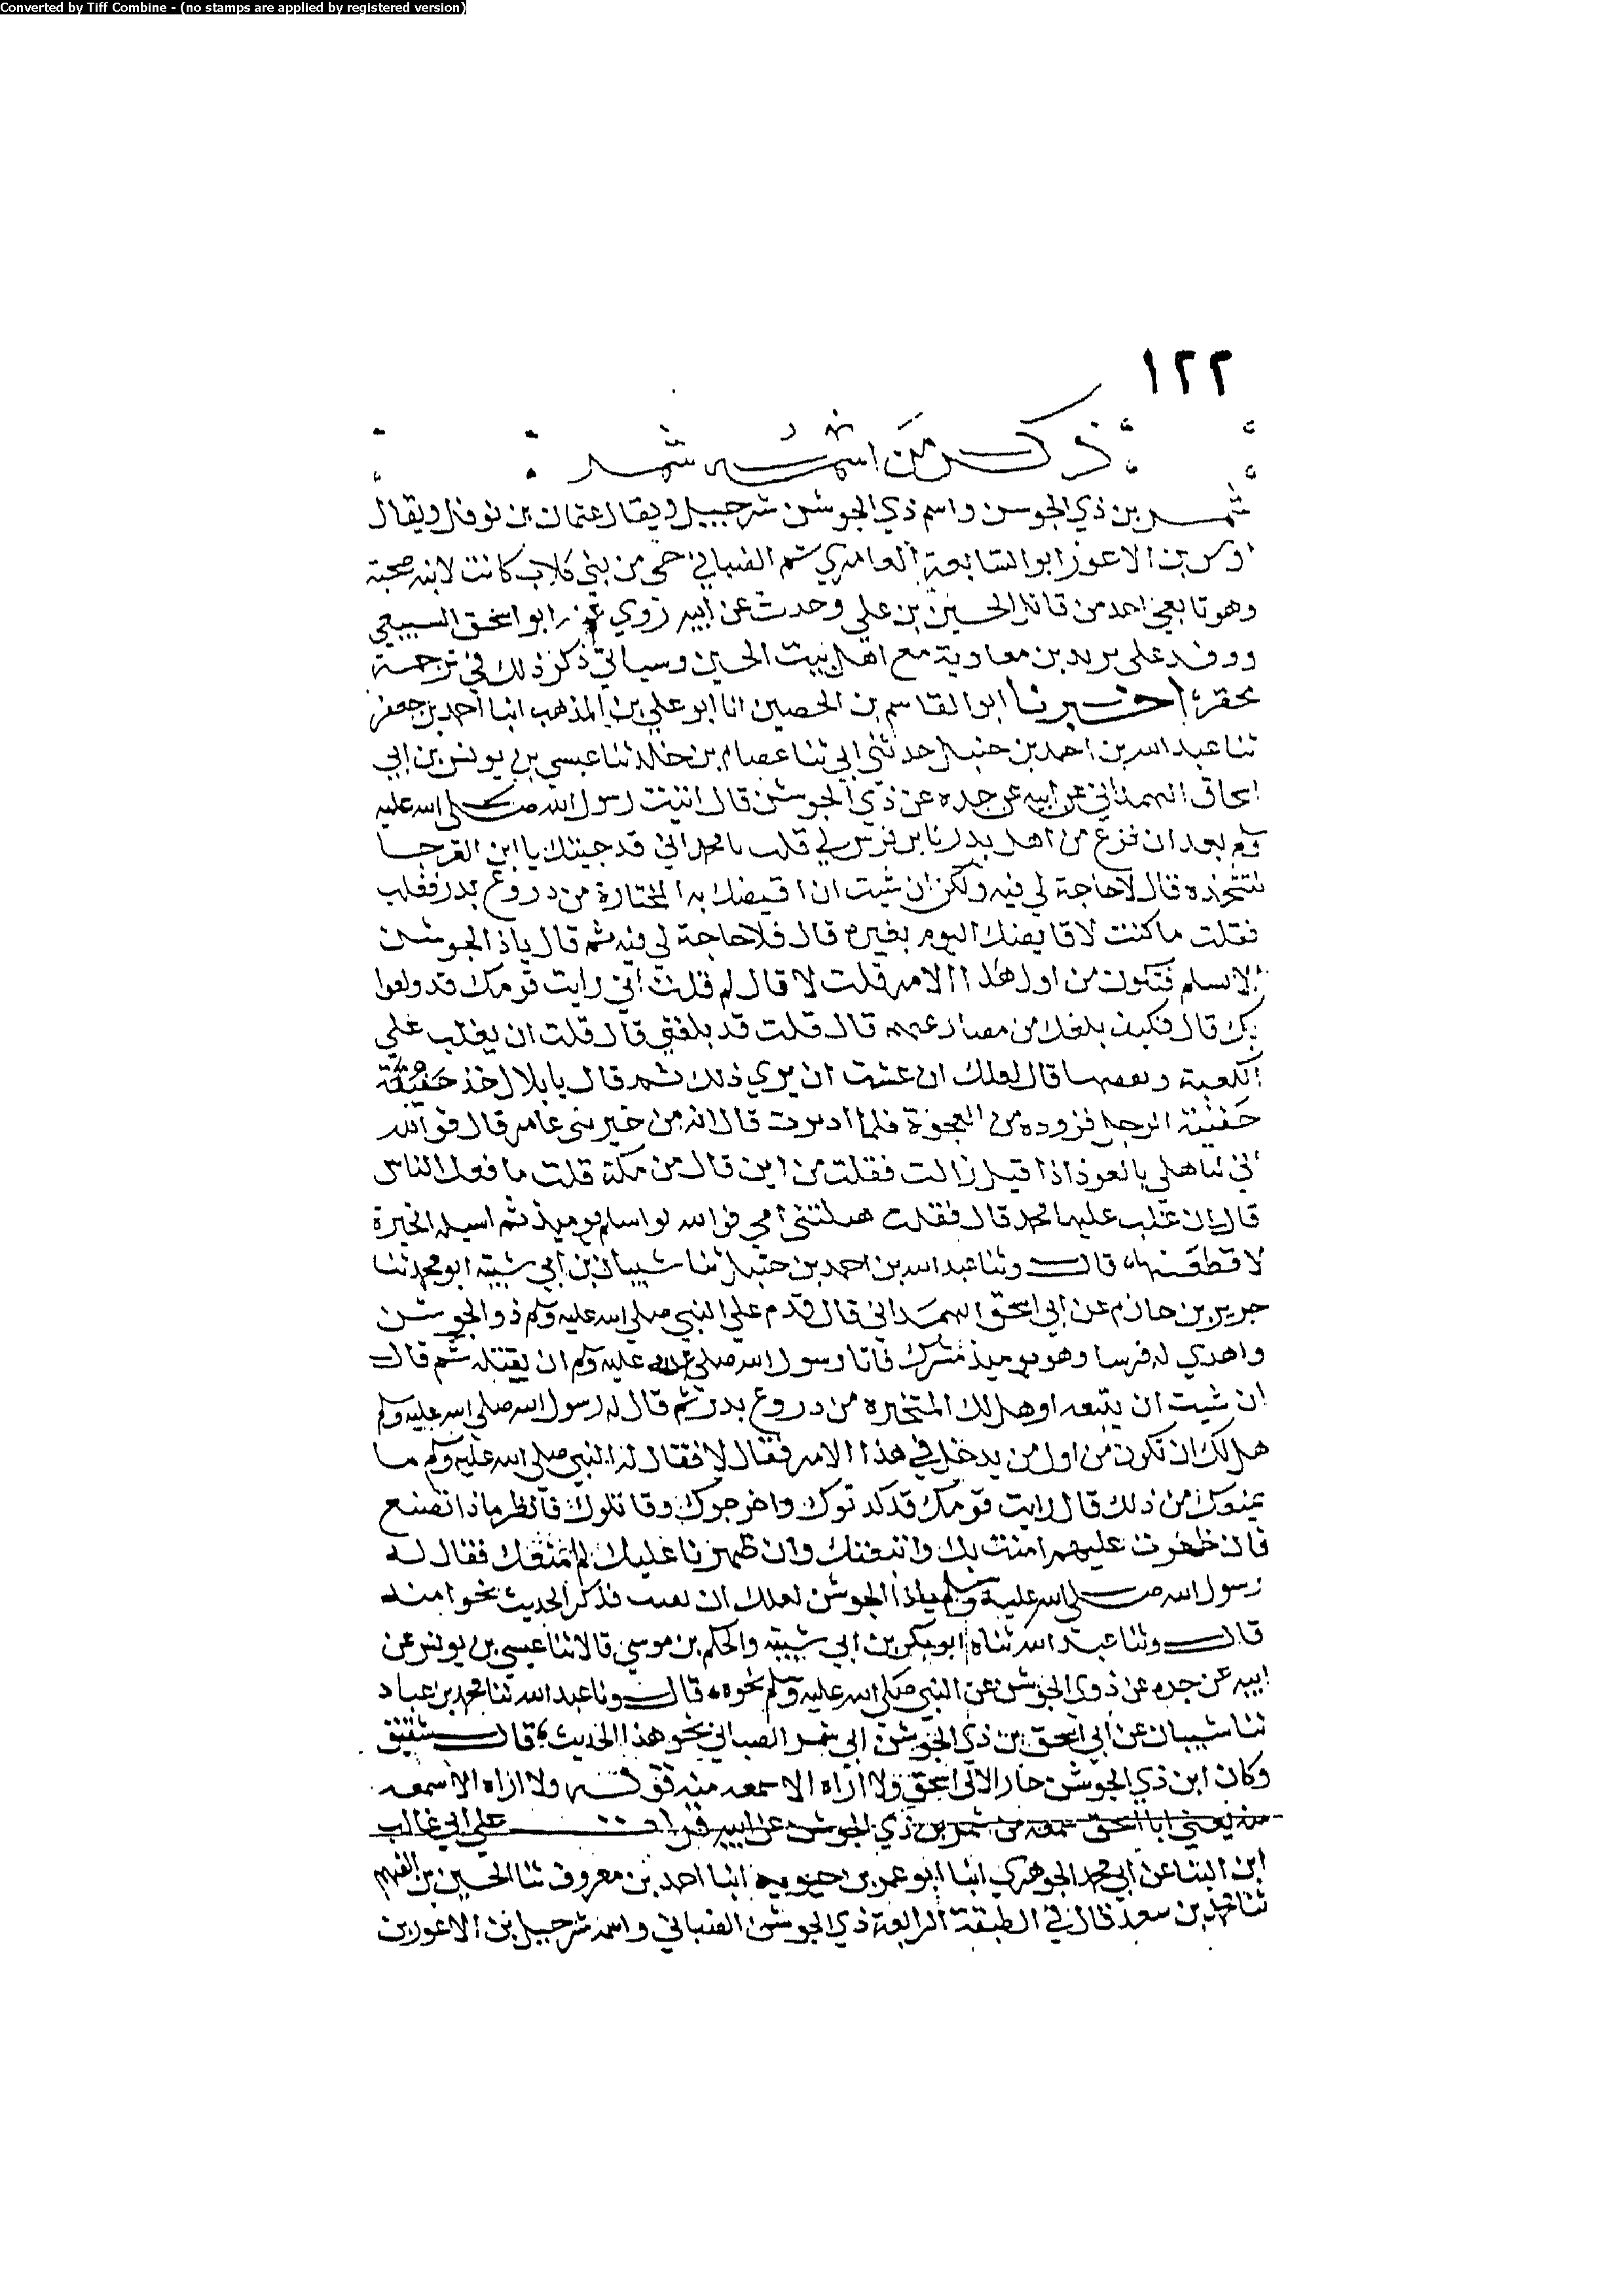 Converted by Tiff Combine - (no stamps are applied by registered version)
١٢٢
ذكر من اسمه شمر
شمر بن ذي الجوسن واسم ذي الجوشن شرحبيل ويقال عثمان بن نوفل ويقال
اوس بن الاعور ابو السابعة العامري ثم الضبابي حي من بني كلاب كانت لابيه صحبة
وهو تابعي احد من قاتل الحسين بن علي وحدث عن ابيه روي عنه ابو اسحق السبيعي
ووفد على يزيد بن معاوية مع اهل بيت الحسين وسياتي ذكر ذلك في ترجمة
محفز اخبرنا ابو القاسم بن الحصين انا ابو علي بن المذهب انبا احمد بن جعفر
ثنا عبد الله بن احمد بن حنبل حدثني ابي ثنا عصام بن خالد ثنا عيسى بن يونس بن ابي
اسحاق الهمداني عن ابيه عن جده عن ذي الجوشن قال اتيت رسول الله صلى الله عليه
وسلم بعد ان فرغ من اهل بدر بابن فرس لي قلت يا محمد اني قد جيتك يا ابن القرحا
لتتخذه قال لا حاجة لي فيه ولكن ان شيت ان اقيضك به المختارة من دروع بدر فعلت
فقلت ما كنت لاقايضك اليوم بغيره قال فلا حاجة لي فيه ثم قال ياذ الجوشن
الا تسلم فتكون من اول هذا الامر قلت لا قال لم قلت اني رايت قومك قد ولعوا
بك قال فكيف بلغك من مصارعهم قال قلت قد بلغني قال قلت ان يغلب على
الكعبة و قال لعلك ان عشت ان يري ذلك ثم قال يا بلال خذ حقيبة
حقيبة الرجل فزوده من العجوة فلما ادبرت قال انه من خير بني عامر قال فوالله
اني باهلي بالغور اذ اقبل فقلت من اين قال من مكة قلت ما فعل الناس
قال ان غلب عليها محمد قال فقلت هبلتني امي فوالله لو اسلم يوميذ ثم اسيله الحيرة
لاقطعنيها قال وثنا عبد الله بن احمد بن حنبل ثنا شيبان بن ابي شيبة ابو محمد ثنا
جرير بن حازم عن ابي اسحق الهمداني قال قدم على النبي صلى الله عليه وسلم ذو الجوشن
واهدي له فرسا وهو يوميذ مشرك فابا رسول الله صلى الله عليه وسلم ان يقبله ثم قال
ان شيت ان يتبعه او هل لك المتخيره من دروع بدر ثم قال له رسول الله صلى الله عليه وسلم
هل لك ان تكون من اول من يدخل في هذا الامر فقال لا فقال له النبي صلى الله عليه وسلم ما
يمنعك من ذلك قال رايت قومك قد كذبوك واخرجوك وقاتلوك فانظر ماذا تصنع
فان ظهرت عليهم امنت بك واتبعتك وان ظهروا عليك لم اتبعك فقال له
رسول الله صلى الله عليه وسلم ياذا الجوشن لعلك ان فذكر الحديث نحوا منه
قال وثنا عبد الله ثناه ابو بكر بن ابي شيبة والحكم بن موسى قالا ثنا عيسى بن يونس عن
ابيه عن جده عن ذي الجوشن عن النبي صلى الله عليه وسلم نحوه قال ونا عبد الله ثنا محمد بن عباد
ثنا شيبان عن ابي اسحق بن ذي الجوشن ابي شمر الضبابي نحو هذا الحديث قال شقيق
وكان ابن ذي الجوشن جارا لابي اسحق ولا اراه الا سمعه منه ولا اراه الا سمعه
منه يعني ابا اسحق سمعه من شمر بن ذي الجوشن عن ابيه قرات على ابي غالب
ابن البنا عن ابي محمد الجوهري انبا ابو عمر بن حيويه انبا احمد بن معروف ثنا الحسين بن الفهم
ثنا محمد بن سعد قال في الطبقة الرابعة ذي الجوشن الضبابي واسمه شرحبيل بن الاعور بن